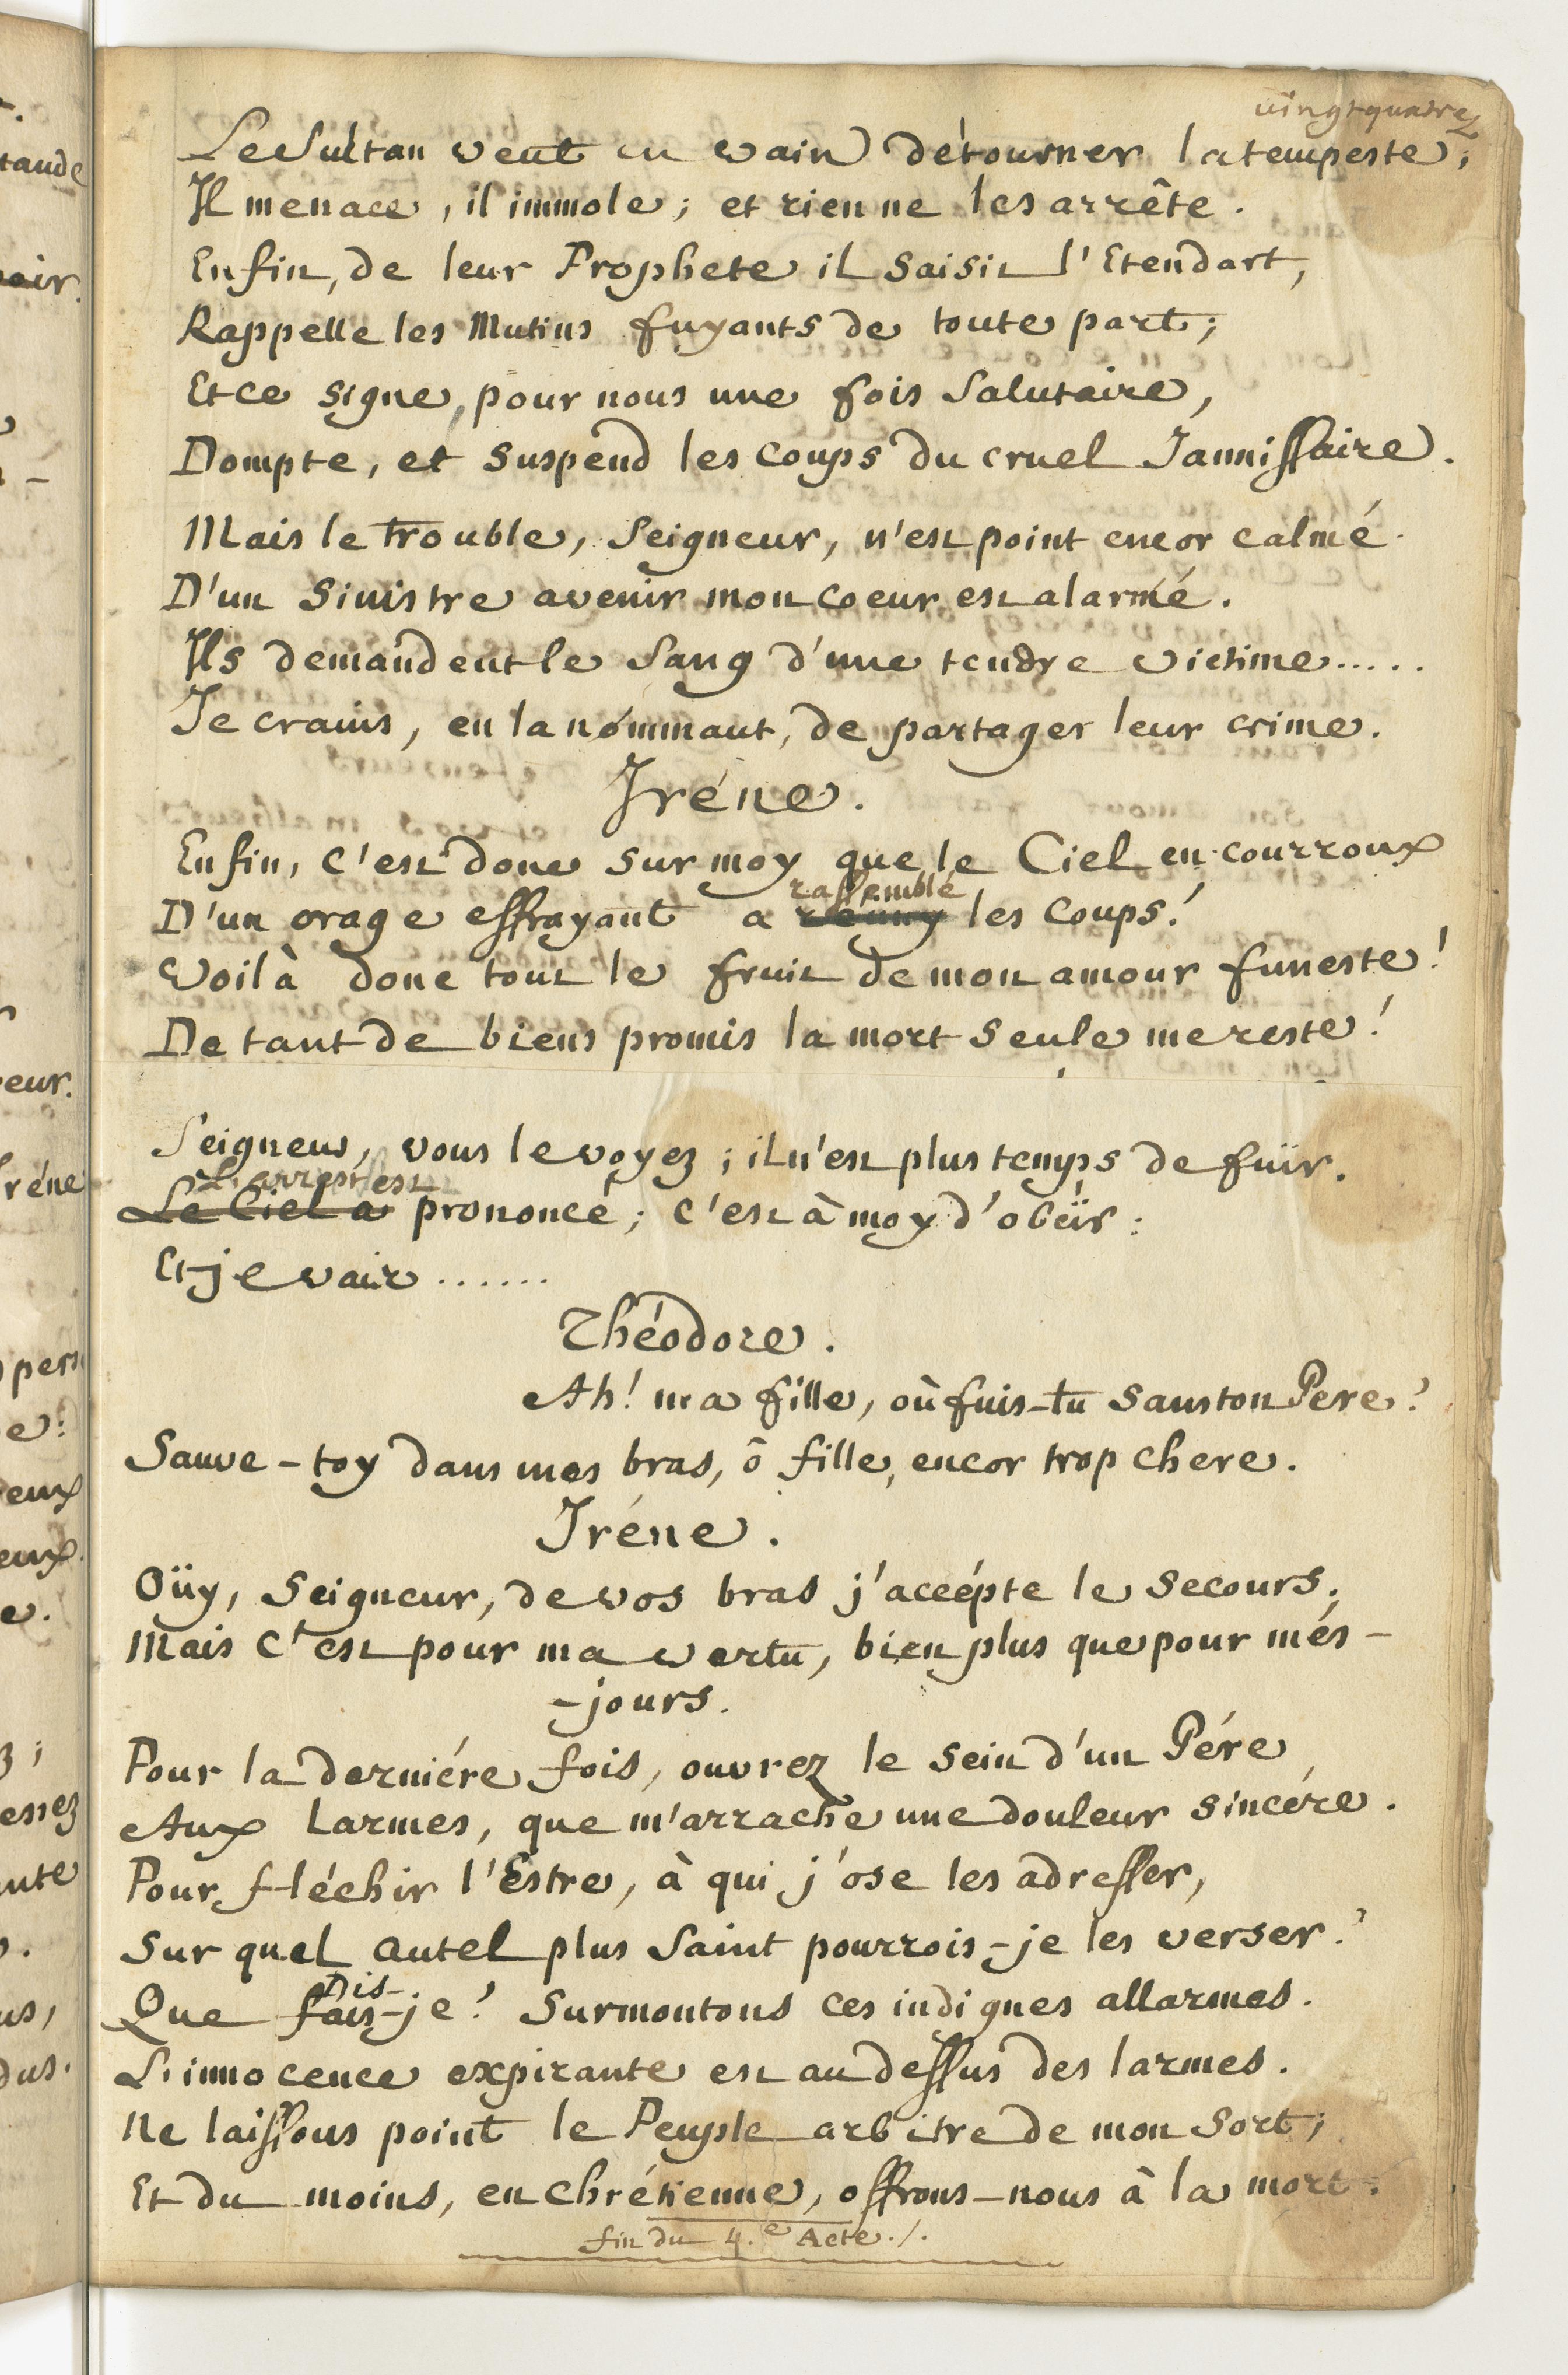 vingt quatre
Le Sultan veut en vain détourner la tempeste;
Il menace, il immole; et rien ne les arrête.
Enfin, de leur Prophete il saisit l'Etendart,
Rappelle les Mutins fuyants de toute part;
Et ce signe, pour nous une fois Salutaire,
Dompte, et suspend les coups du cruel Jannissaire.
Mais le trouble, Seigneur, n'est point encor calmé.
D'un sinistre avenir mon coeur est alarmé.
Ils demandent le Sang d'une tendre victime.....
Je crains, en la nommant, de partager leur crime.
Iréne.
Enfin, c'est donc sur moy que le Ciel en courroux
rassemblé
D'un orage effrayant a reuny les coups!
Voilà donc tout le fruit de mon amour funeste!
De tant de biens promis la mort seule me reste!
Seigneur, vous le voyez; il n'est plus temps de fuïr.
L'arrest est
Le Ciel a prononcé; c'est à moy d'obéïr:
Et je vais ......
Théodore.
Ah! ma fille, où fuis-tu sans ton Pere?
Sauve-toy dans mes bras, ô fille, encor trop chere.
Iréne.
Oüy, Seigneur, de vos bras j'accépte le secours;
Mais c'est pour ma vertu, bien plus que pour més-
-jours.
Pour la derniére fois, ouvrez le sein d'un Pére
Aux larmes, que m'arrache une douleur sincére.
Pour fléchir l'Estre, à qui j'ose les adresser,
Sur quel autel plus Saint pourrois-je les verser?
Dis-
Que fais-je? Surmontons ces indignes allarmes.
L'innocence expirante est au dessus des larmes.
Ne laissons point le Peuple arbitre de mon Sort;
Et du moins, en chrétienne, offrons-nous à la mort.
fin du 4.e Acte./.